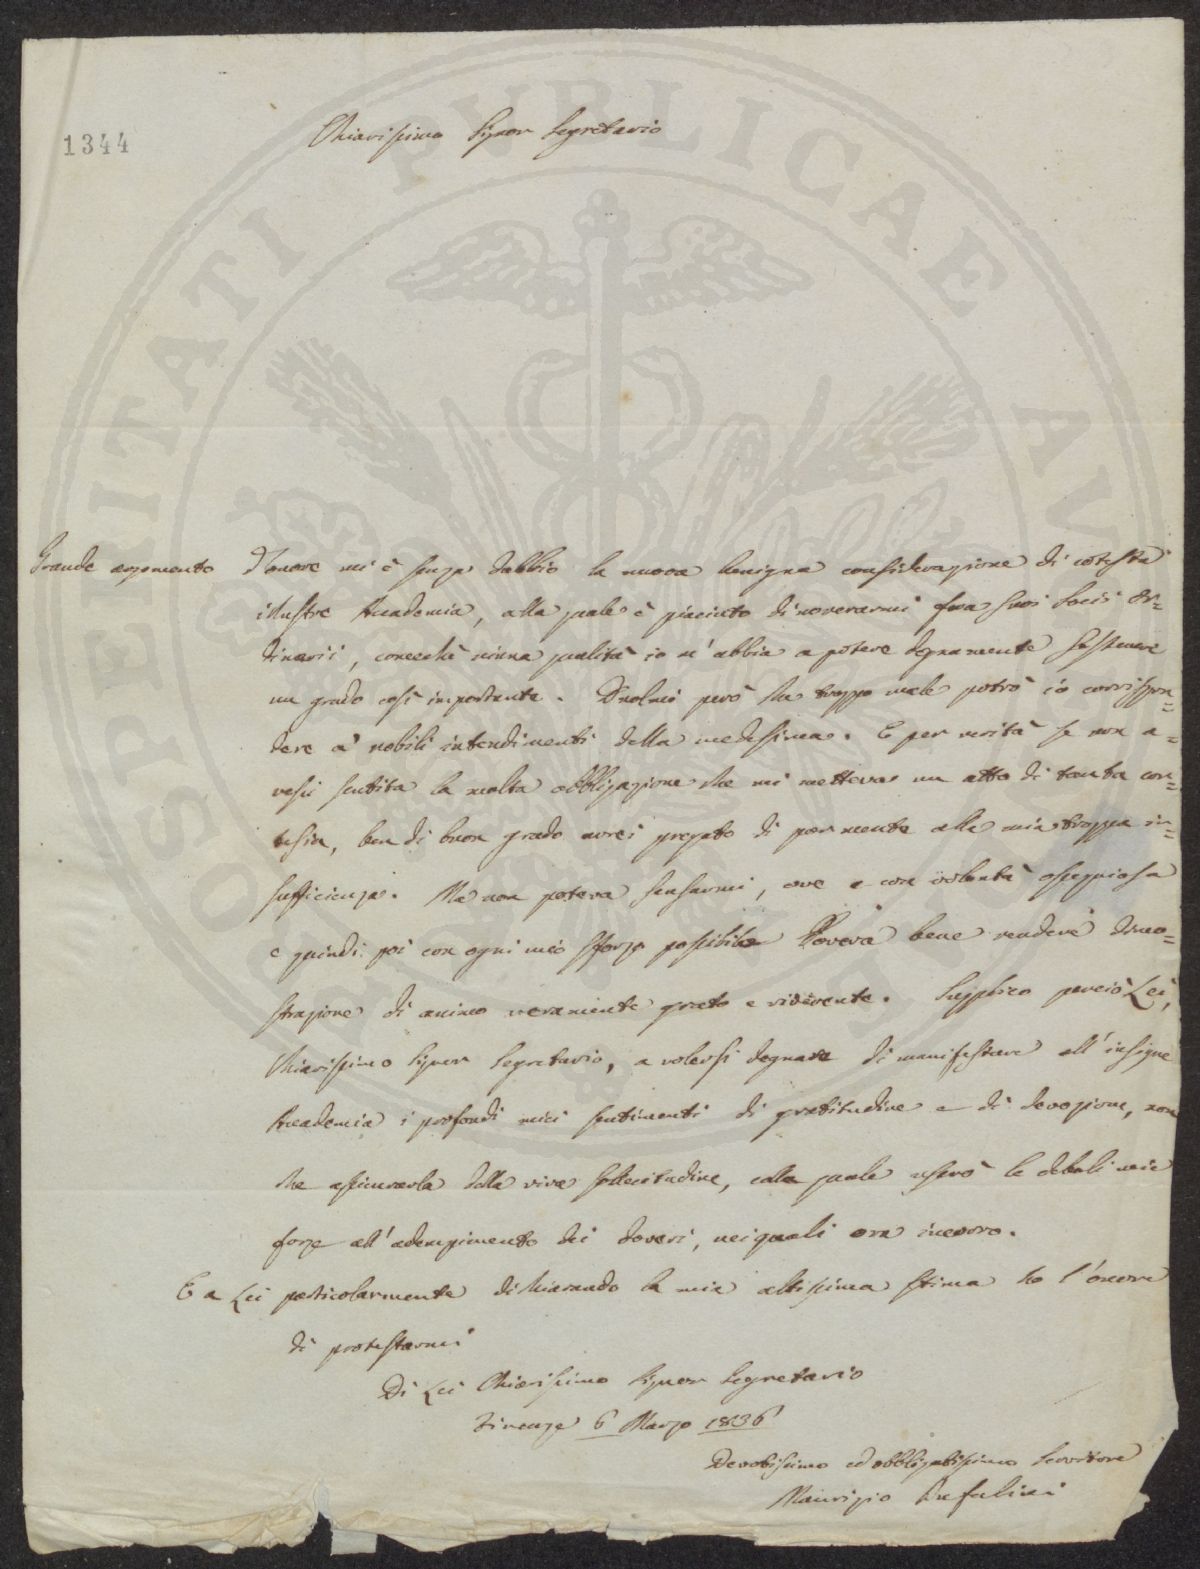 PROSPERITATI PVBLICAE AVGENDAE
1344
Chiarissimo Signor Segretario
Grande argomento d'onore mi è senza dubbio la nuova benigna considerazione di cotesta
illustre Accademia, alla quale è piaciuto di noverarmi fra suoi Socii Or=
dinarii, conecché niuna qualità io m'abbia a potere degnamente sostenere
un grado così importante. Duolmi però che troppo male potrò io corrispon=
dere a' nobili intendimenti della medesima. E per verità se non a=
vessi sentita la molta obbligazione che mi metteva un atto di tanta cor=
tesia, ben di buon grado avrei pregato di por mente alla mia troppa in=
sufficienza. Ma non poteva scusarmi, ove e con volontà ossequiosa
e quindi poi con ogni mio sforzo possibile doveva bene rendere dimo=
strazione di animo veramente grato e riverente. Supplico perciò Lei,
Chiarissimo Signor Segretario, a volersi degnare di manifestare all'insigne
Accademia i profondi miei sentimenti di gratitudine e di devozione, non
che assicurarla della viva sollecitudine, colla quale userò le deboli mie
forze all'adempimento dei doveri, nei quali ora incorro.
E a Lei particolarmente dichiarando la mia altissima stima ho l'onore
di protestarmi
Di Lei Chiarissimo Signor Segretario
Firenze 6 Marzo 1836
Devotissimo ed obbligatissimo Servitore
Maurizio Bufalini